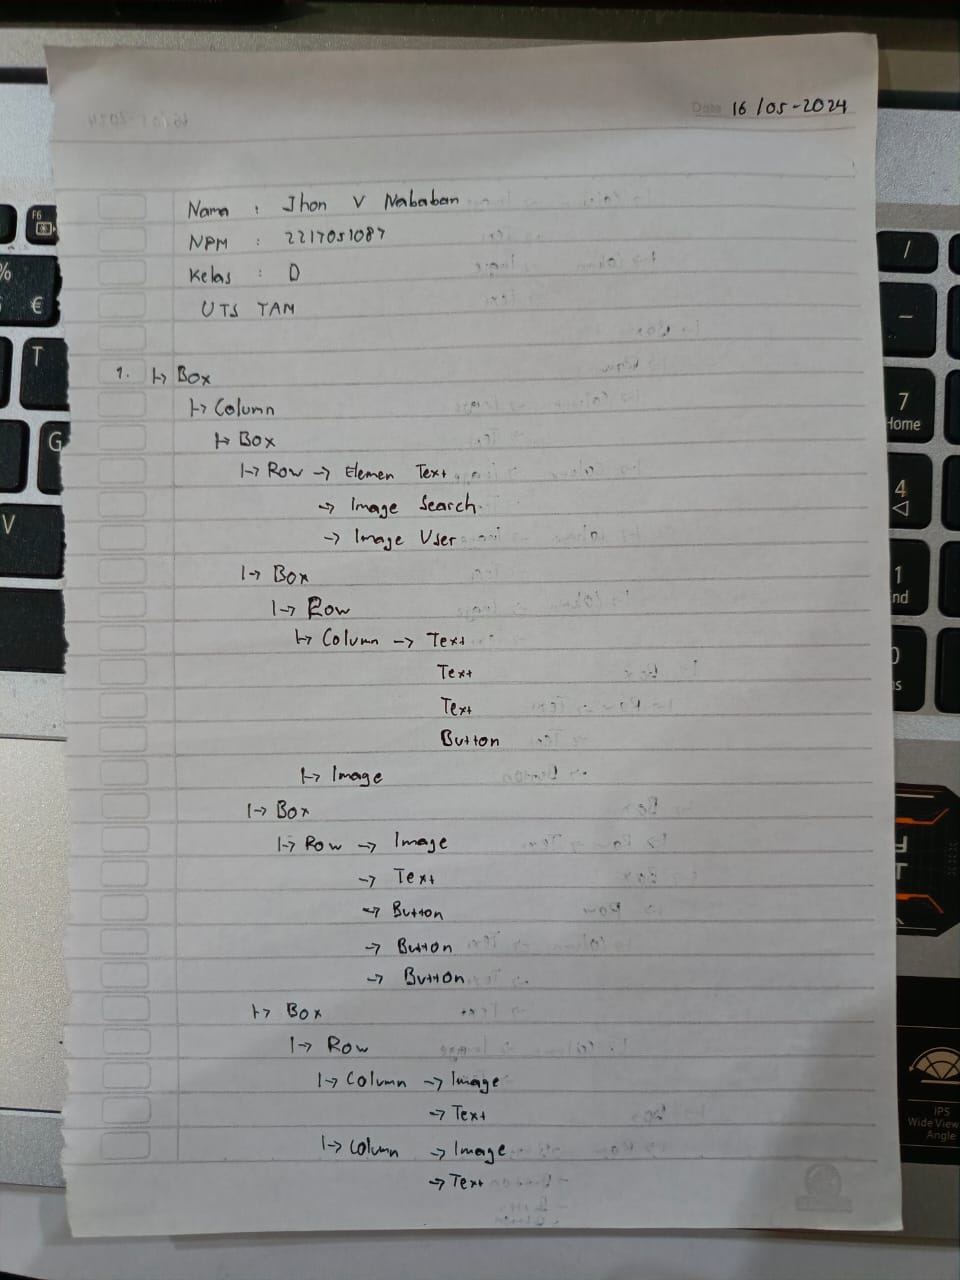 Date 16/05-2024
Nama : Jhon V Nababan
NPM : 2217051087
Kelas : D
UTS TAM
1. ↦ Box
↦ Column
↦ Box
↦ Row → Elemen Text
→ Image Search
→ Image User
↦ Box
↦ Row
↦ Column → Text
Text
Text
Button
↦ Image
↦ Box
↦ Row → Image
→ Text
→ Button
→ Button
→ Button
↦ Box
↦ Row
↦ Column → Image
→ Text
↦ Column → Image
→ Text
F6
%
€
T
G
V
/
-
7
Home
4
1
IPS
Wide View
Angle